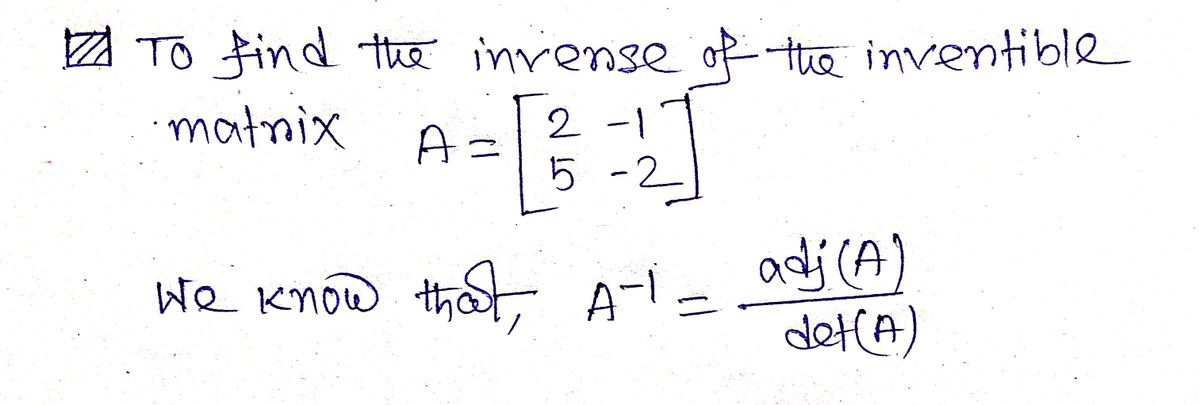 To find the inverse of the invertible
matrix A = [2 -1
5 -2]
We know that, A⁻¹ = adj(A)
det(A)